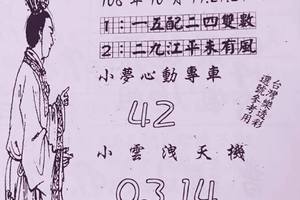 1：一五配二四雙數
2：二九江平未有風
小夢心動專車
42
小雲洩天機
0.3.14
台灣樂透彩
選號參考用